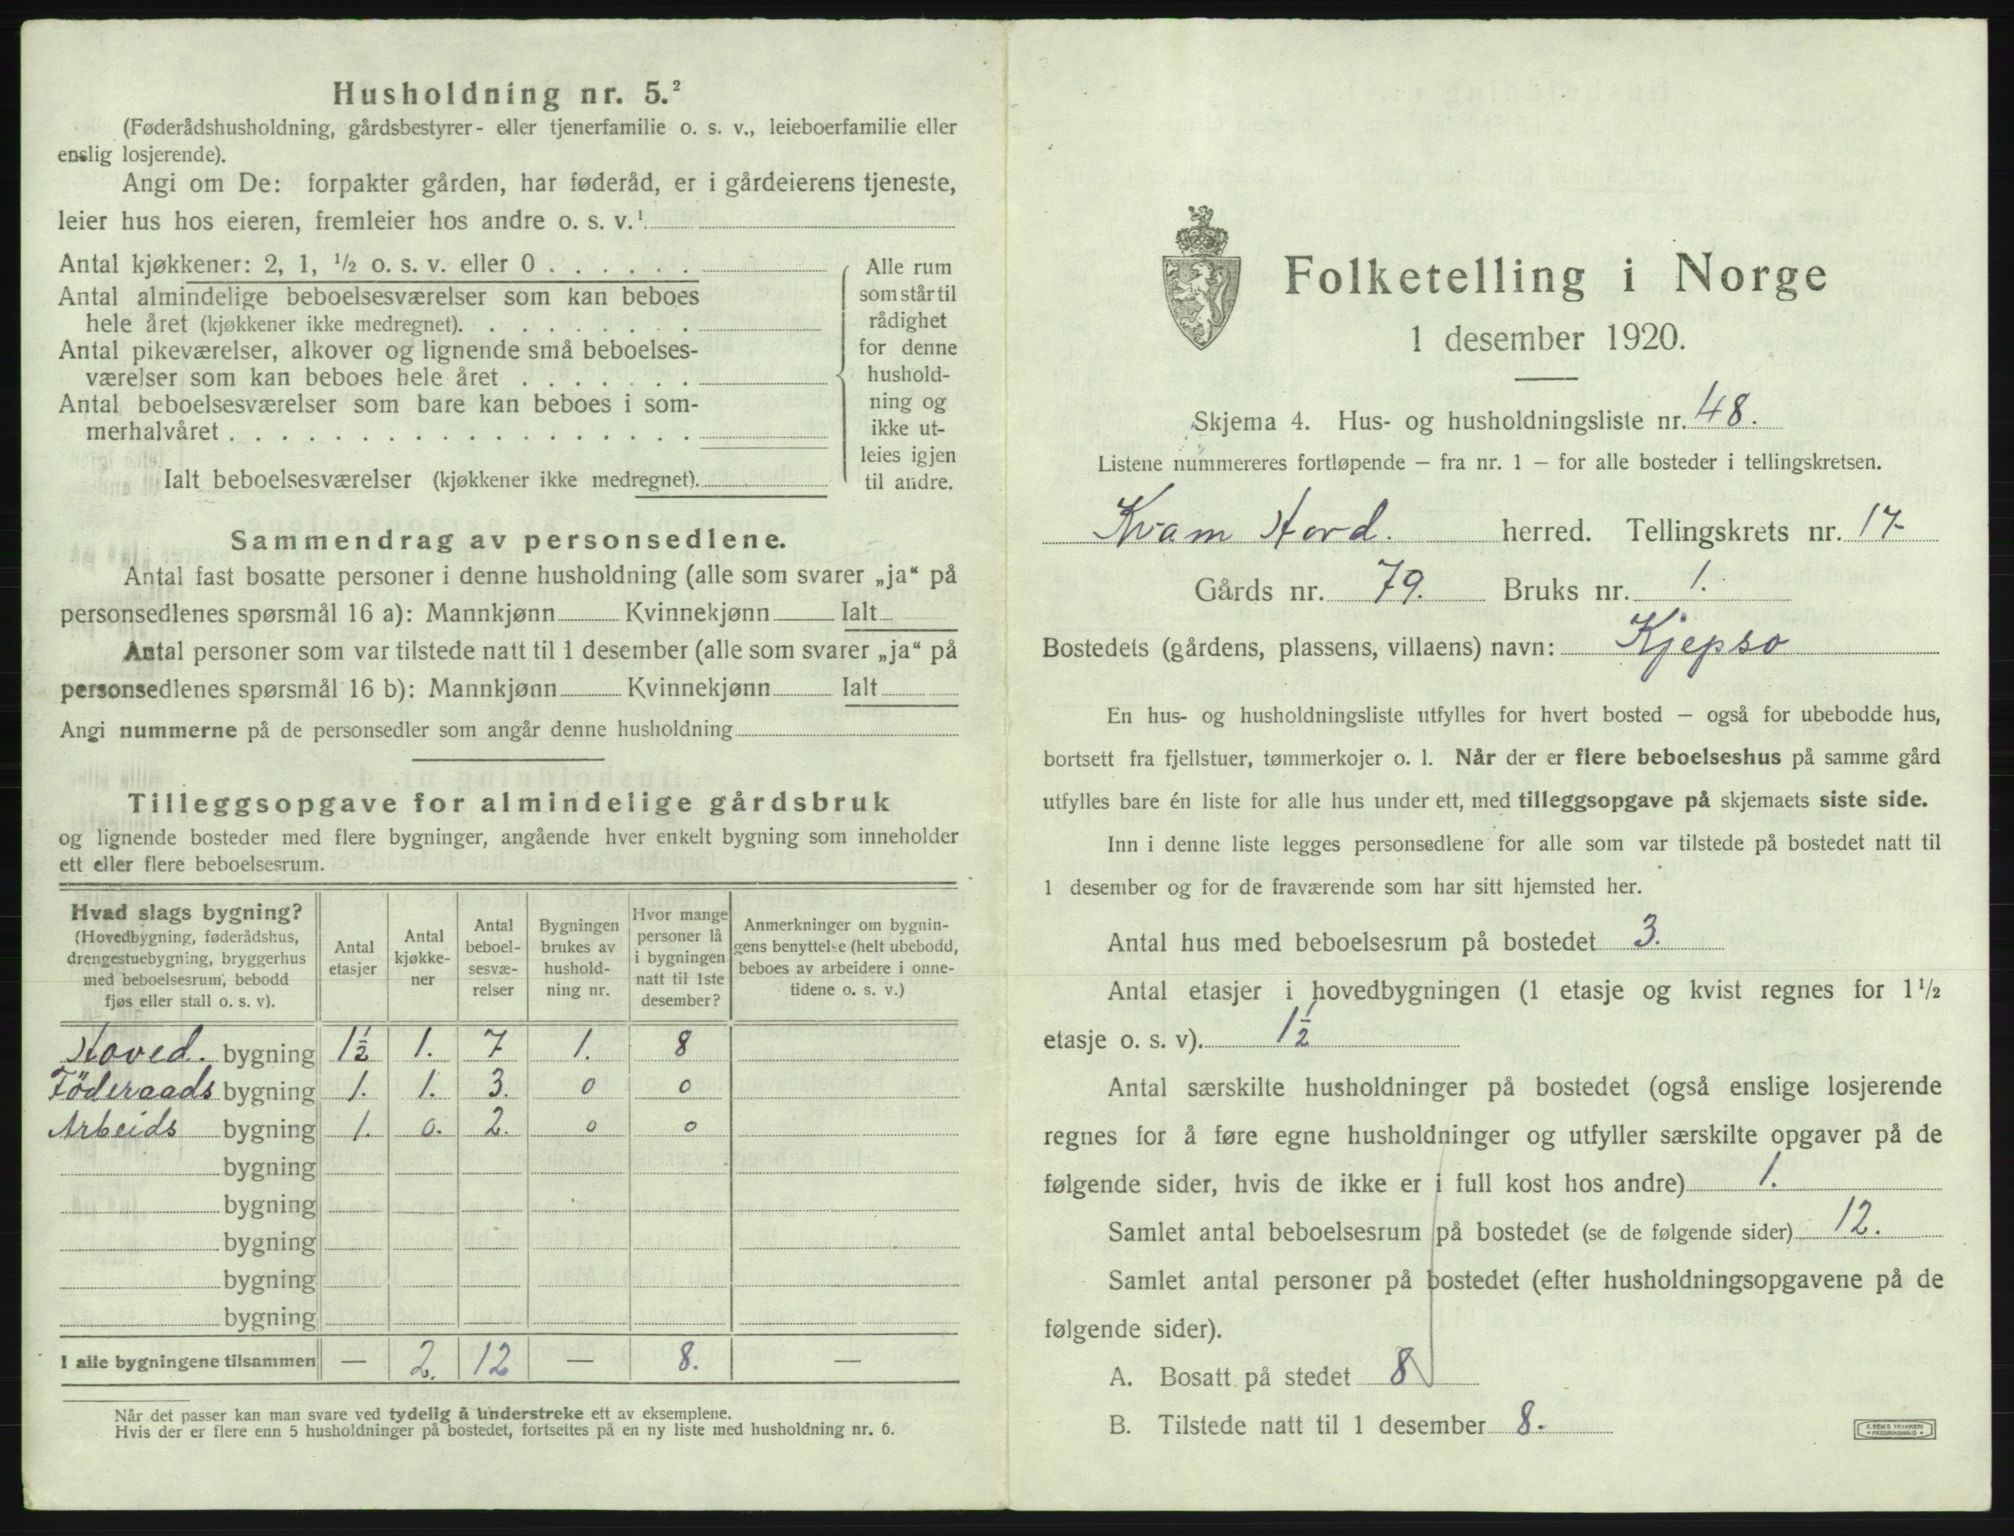 Husholdning nr. 5.²
(Føderådshusholdning, gårdsbestyrer- eller tjenerfamilie o. s. v., leieboerfamilie eller
enslig losjerende).
Angi om De: forpakter gården, har føderåd, er i gårdeierens tjeneste,
leier hus hos eieren, fremleier hos andre o. s. v.¹
Antal kjøkkener: 2, 1, ½ o. s. v. eller 0 . . . . . .
Antal almindelige beboelsesværelser som kan beboes
hele året (kjøkkener ikke medregnet). . . . . . . . .
Antal pikeværelser, alkover og lignende små beboelses-
værelser som kan beboes hele året . . . . . . .
Antal beboelsesværelser som bare kan beboes i som-
merhalvåret . . . . . . . . . . . . . . . . . .
Ialt beboelsesværelser (kjøkkener ikke medregnet).
Alle rum
som står til
rådighet
for denne
hushold-
ning og
ikke ut-
leies igjen
til andre.
Sammendrag av personsedlene.
Antal fast bosatte personer i denne husholdning (alle som svarer „ja“ på
personsedlenes spørsmål 16 a): Mannkjønn Kvinnekjønn Ialt
Antal personer som var tilstede natt til 1 desember (alle som svarer „ja“ på
personsedlenes spørsmål 16 b): Mannkjønn Kvinnekjønn Ialt
Angi nummerne på de personsedler som angår denne husholdning
Tilleggsopgave for almindelige gårdsbruk
og lignende bosteder med flere bygninger, angående hver enkelt bygning som inneholder
ett eller flere beboelsesrum.
Hvad slags bygning?
(Hovedbygning, føderådshus,
drengestuebygning, bryggerhus
med beboelsesrum, bebodd
fjøs eller stall o. s. v).
Antal
etasjer
Antal
kjøkke-
ner
Antal
beboel-
sesvæ-
relser
Bygningen
brukes av
hushold-
ning nr.
Hvor mange
personer lå
i bygningen
natt til 1ste
desember?
Anmerkninger om bygnin-
gens benyttelse (helt ubebodd,
beboes av arbeidere i onne-
tidene o. s. v.)
Hoved. bygning 1½ 1. 7 1. 8
Föderaads bygning 1. 1. 3. 0 0
Arbeids bygning 1. 0. 2. 0 0
bygning
bygning
bygning
bygning
bygning
I alle bygningene tilsammen — 2. 12 — 8. —
Når det passer kan man svare ved tydelig å understreke ett av eksemplene.
Hvis der er flere enn 5 husholdninger på bostedet, fortsettes på en ny liste med husholdning nr. 6.
Folketelling i Norge
1 desember 1920.
Skjema 4. Hus- og husholdningsliste nr. 48.
Listene nummereres fortløpende — fra nr. 1 — for alle bosteder i tellingskretsen.
Kvam Hord. herred. Tellingskrets nr. 17
Gårds nr. 79. Bruks nr. 1.
Bostedets (gårdens, plassens, villaens) navn: Kjepso
En hus- og husholdningsliste utfylles for hvert bosted — også for ubebodde hus,
bortsett fra fjellstuer, tømmerkojer o. l. Når der er flere beboelseshus på samme gård
utfylles bare én liste for alle hus under ett, med tilleggsopgave på skjemaets siste side.
Inn i denne liste legges personsedlene for alle som var tilstede på bostedet natt til
1 desember og for de fraværende som har sitt hjemsted her.
Antal hus med beboelsesrum på bostedet 3.
Antal etasjer i hovedbygningen (1 etasje og kvist regnes for 1½
etasje o. s. v). 1½
Antal særskilte husholdninger på bostedet (også enslige losjerende
regnes for å føre egne husholdninger og utfyller særskilte opgaver på de
følgende sider, hvis de ikke er i full kost hos andre) 1.
Samlet antal beboelsesrum på bostedet (se de følgende sider) 12.
Samlet antal personer på bostedet (efter husholdningsopgavene på de
følgende sider).
A. Bosatt på stedet 8
B. Tilstede natt til 1 desember 8.
E. SEM'S TRYKKERI
FREDRIKSHALD